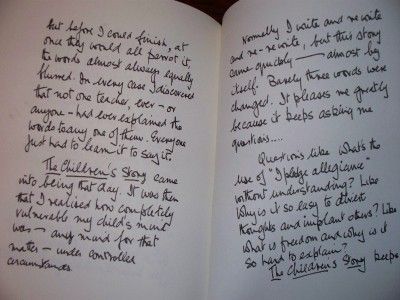 but before I could finish, at
once they would all parrot it,
the words almost always equally
blurred. In every case I discovered
that not one teacher, ever - or
anyone - had ever explained the
words to any one of them. Everyone
just had to learn it to say it.
The Children's Story came
into being that day. It was then
that I realized how completely
vulnerable my child's mind
was - any mind for that
matter - under controlled
circumstances.
Normally I write and re write
and re-re write, but this story
came quickly - almost by
itself. Barely three words were
changed. It pleases me greatly
because it keeps asking me
questions....
Questions like what's the
use of "I pledge allegiance"
without understanding? Like
Why is it so easy to divert
thoughts and implant others? Like
What is freedom and why is it
so hard to explain?
The Children's Story keeps